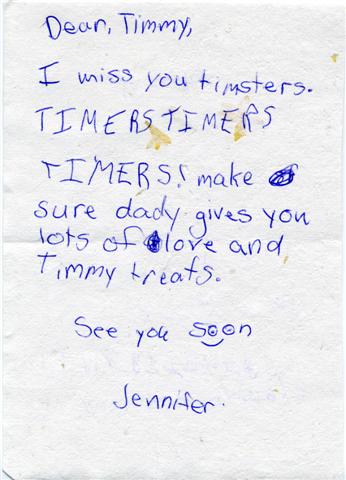 Dear, Timmy,
I miss you timsters.
TIMERS TIMERS
TIMERS! make
sure dady gives you
lots of love and
Timmy treats.
See you soon
Jennifer.